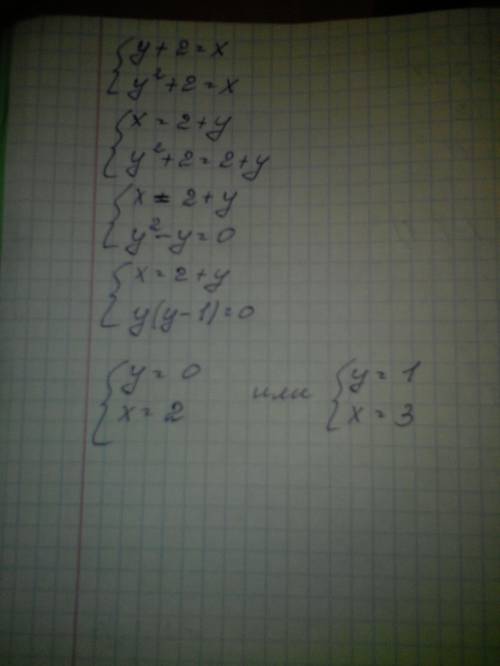 { y + 2 = x
{ y² + 2 = x
{ x = 2 + y
{ y² + 2 = 2 + y
{ x = 2 + y
{ y² - y = 0
{ x = 2 + y
{ y(y - 1) = 0
{ y = 0 или { y = 1
{ x = 2 { x = 3